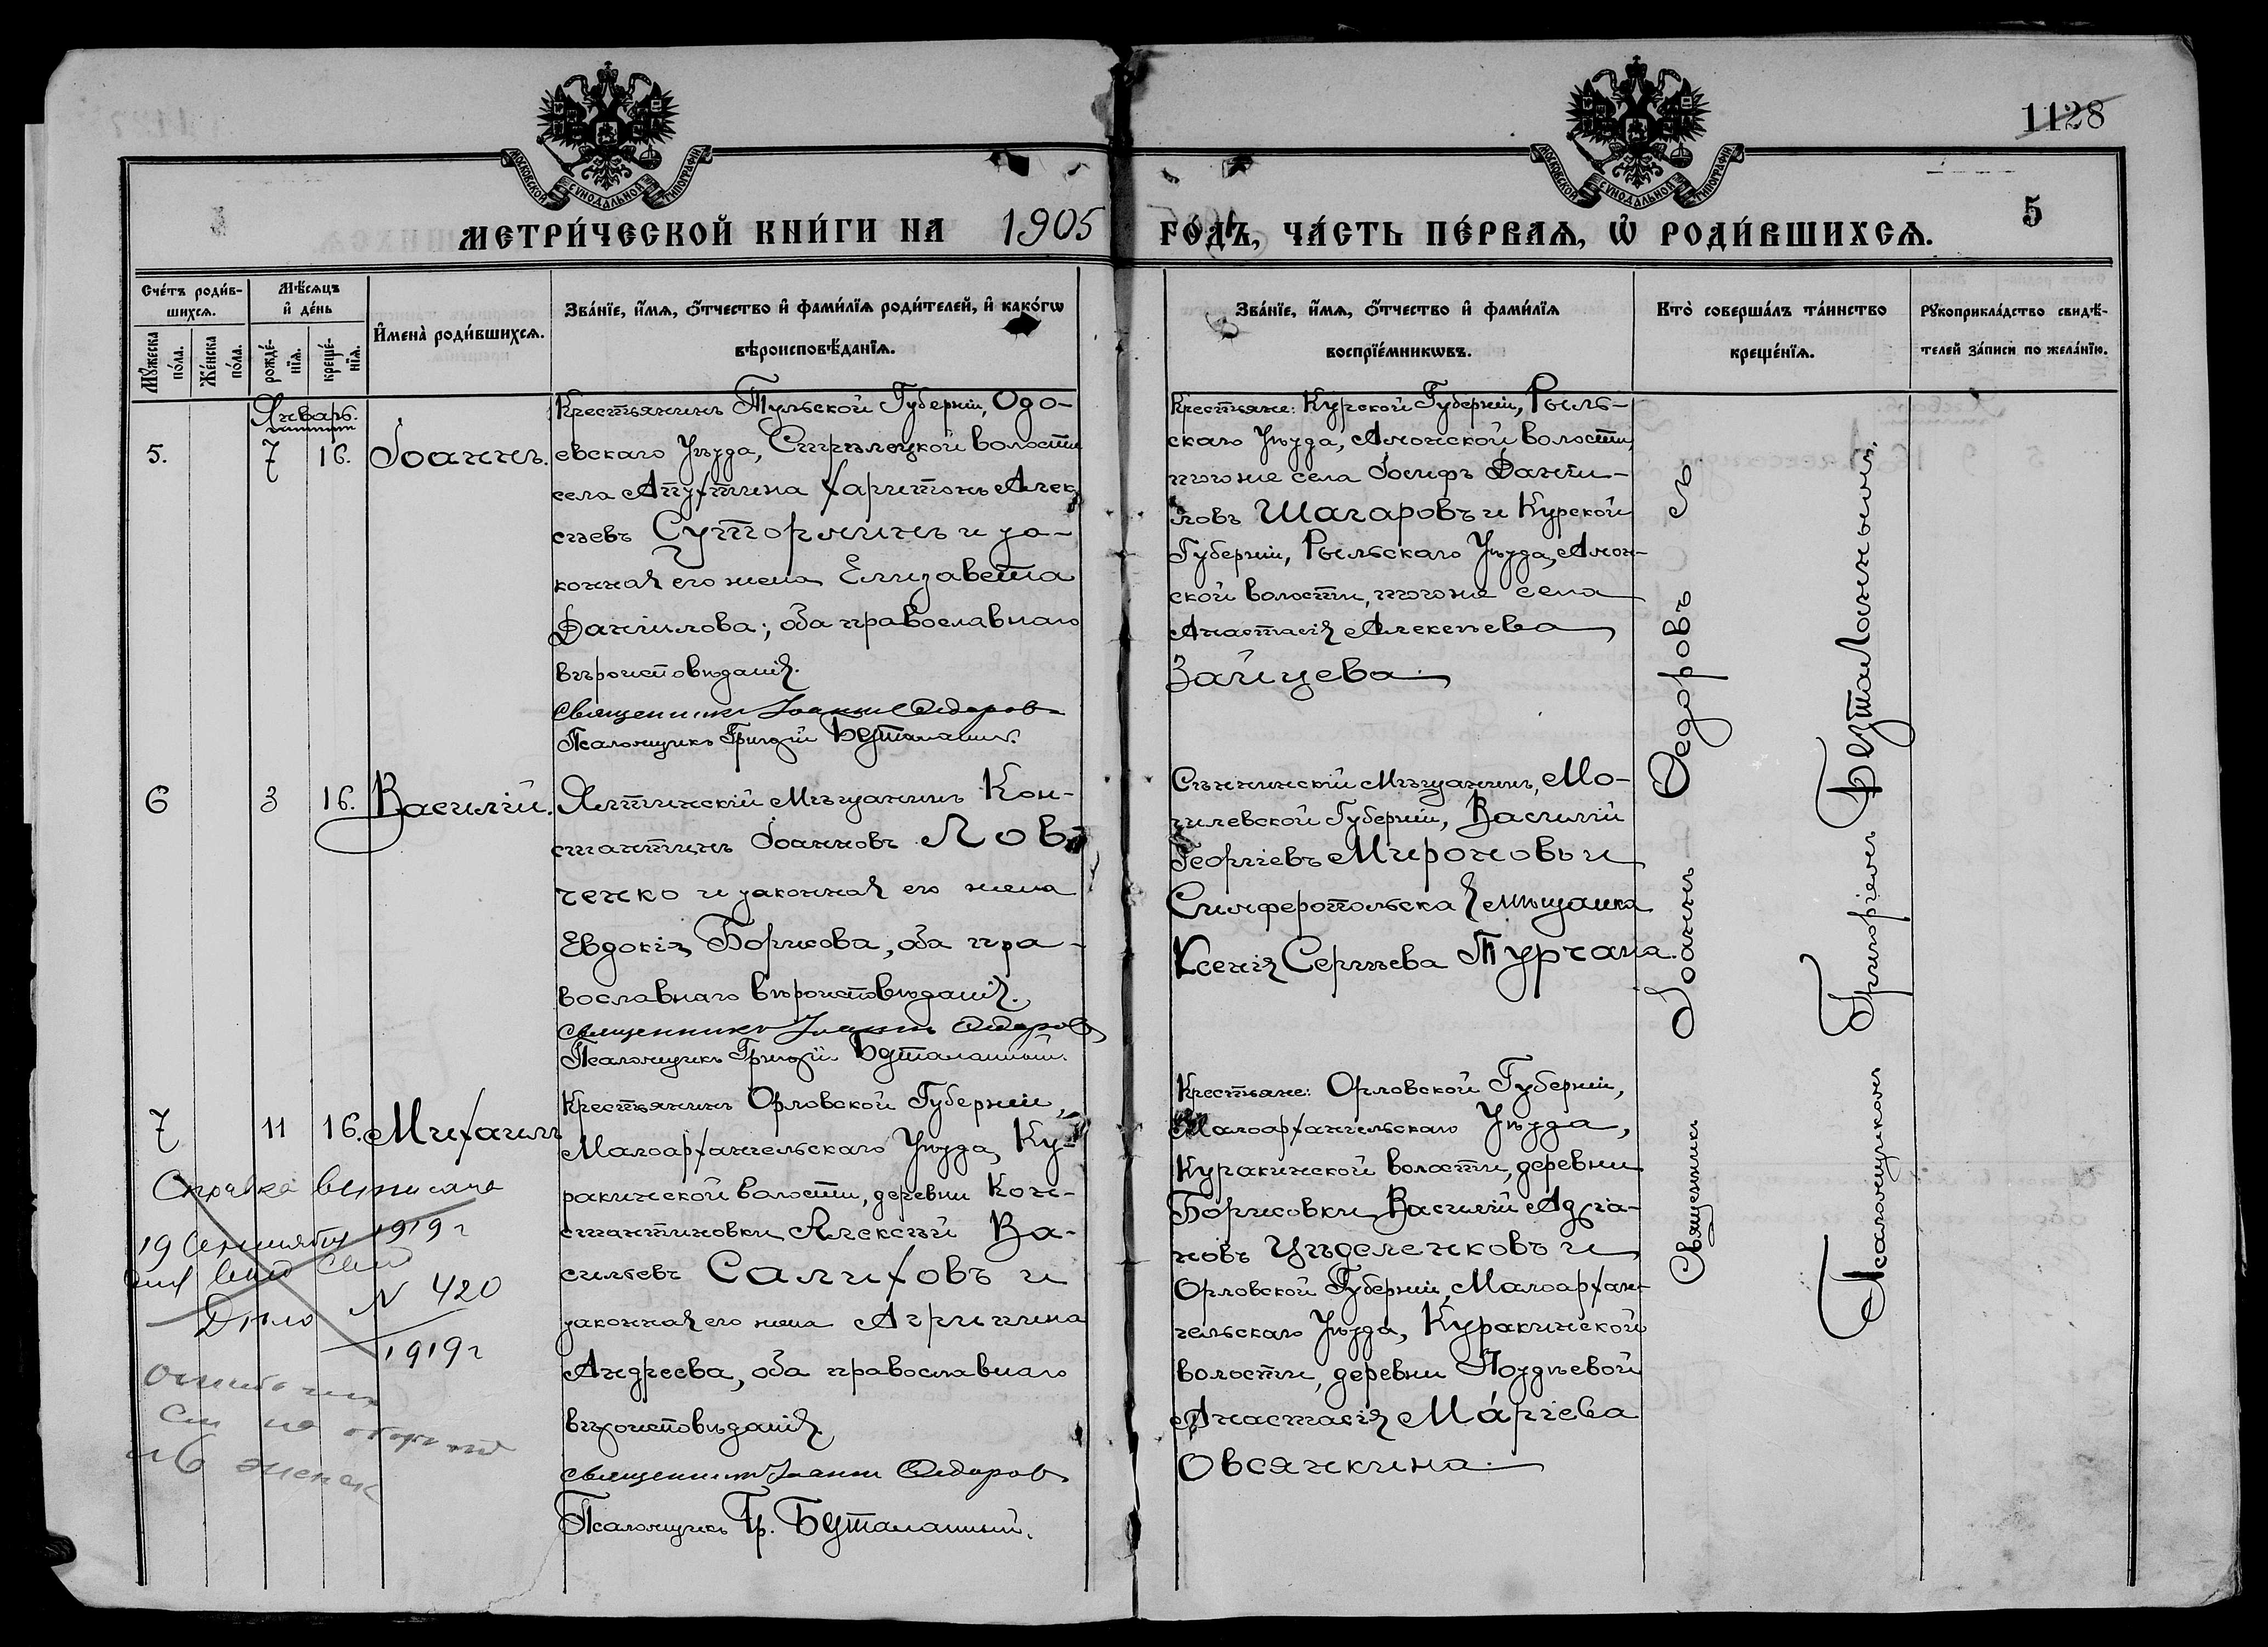 1128
МОСКОВСКОЙ СУНОДАЛЬНОЙ ТИПОГРАФІИ
МОСКОВСКОЙ СУНОДАЛЬНОЙ ТИПОГРАФІИ
5
МЕТРИ́ЧЕСКОЙ КНИ́ГИ НА 1905 ГО́ДЪ, ЧА́СТЬ ПЕ́РВАѦ, Ѡ҆ РОДИ́ВШИХСѦ.
Сче́тъ роди́в-
шихсѧ.
Мꙋ́жеска по́ла.
Же́нска по́ла.
Мѣ́сѧцъ
и҆ де́нь
рожде́-
нїѧ.
креще́-
нїѧ.
И҆мена̀ роди́вшихсѧ.
Зва́нїе, и҆́мѧ, ѻ҆́тчество и҆ фами́лїѧ роди́телей, и҆ како́гѡ
вѣроисповѣ́данїѧ.
Зва́нїе, и҆́мѧ, ѻ҆́тчество и҆ фами́лїѧ
воспрїе́мникѡвъ.
Кто̀ соверша́лъ та́инство
креще́нїѧ.
Рꙋкоприкла́дство свидѣ́-
телей за́писи по жела́нїю.
Январь.
5. 7 16. Іоаннъ.
Крестьянинъ Тульской Губерніи, Одо-
евскаго Уѣзда, Стрѣлецкой волости
села Апухтина Харитонъ Алек
сѣевъ Суторминъ и за-
конная его жена Елизавета
Даніилова; оба православнаго
вѣроисповѣданія.
Священникъ Іоаннъ Ѳедоровъ
Псаломщикъ Григорій Безталанный.
Крестьяне: Курской Губерніи, Рыль-
скаго Уѣзда, Амонской волости,
того же села Іосифъ Даніи-
ловъ Шагаровъ и Курской
Губерніи, Рыльскаго Уѣзда, Амон-
ской волости, того же села
Анастасія Алексѣева
Зайцева.
6 3 16. Василій.
Ялтинскій Мѣщанинъ Кон-
стантинъ Іоанновъ Лов-
ченко и законная его жена
Евдокія Борисова, оба пра-
вославнаго вѣроисповѣданія.
Священникъ Іоаннъ Ѳедоровъ
Псаломщикъ Григорій Безталанный.
Сѣннинскій Мѣщанинъ, Мо-
гилевской Губерніи, Василій
Георгіевъ Мироновъ и
Симферопольская мѣщанка
Ксенія Сергѣева Турчана.
7 11 16. Михаилъ
Крестьянинъ Орловской Губерніи,
Малоархангельскаго Уѣзда, Ку-
ракинской волости, деревни Кон-
стантиновки Алексѣй Ва-
сильевъ Салиховъ и
законная его жена Агрипина
Андреева, оба православнаго
вѣроисповѣданія.
Священникъ Іоаннъ Ѳедоровъ
Псаломщикъ Гр. Безталанный.
Крестьяне: Орловской Губерніи,
Малоархангельскаго Уѣзда,
Куракинской волости, деревни
Борисовки Василій Адріа-
новъ Цѣделенковъ и
Орловской Губерніи, Малоархан-
гельскаго Уѣзда, Куракинской
волости, деревни Позднѣевой
Анастасія Ма́ріева
Овсянкина.
Справка выписана
19 1919 г
Дѣло N 420
1919 г
см на обороте
Священникъ Іоаннъ Ѳедоровъ
Псаломщикомъ Григоріемъ Безталаннымъ